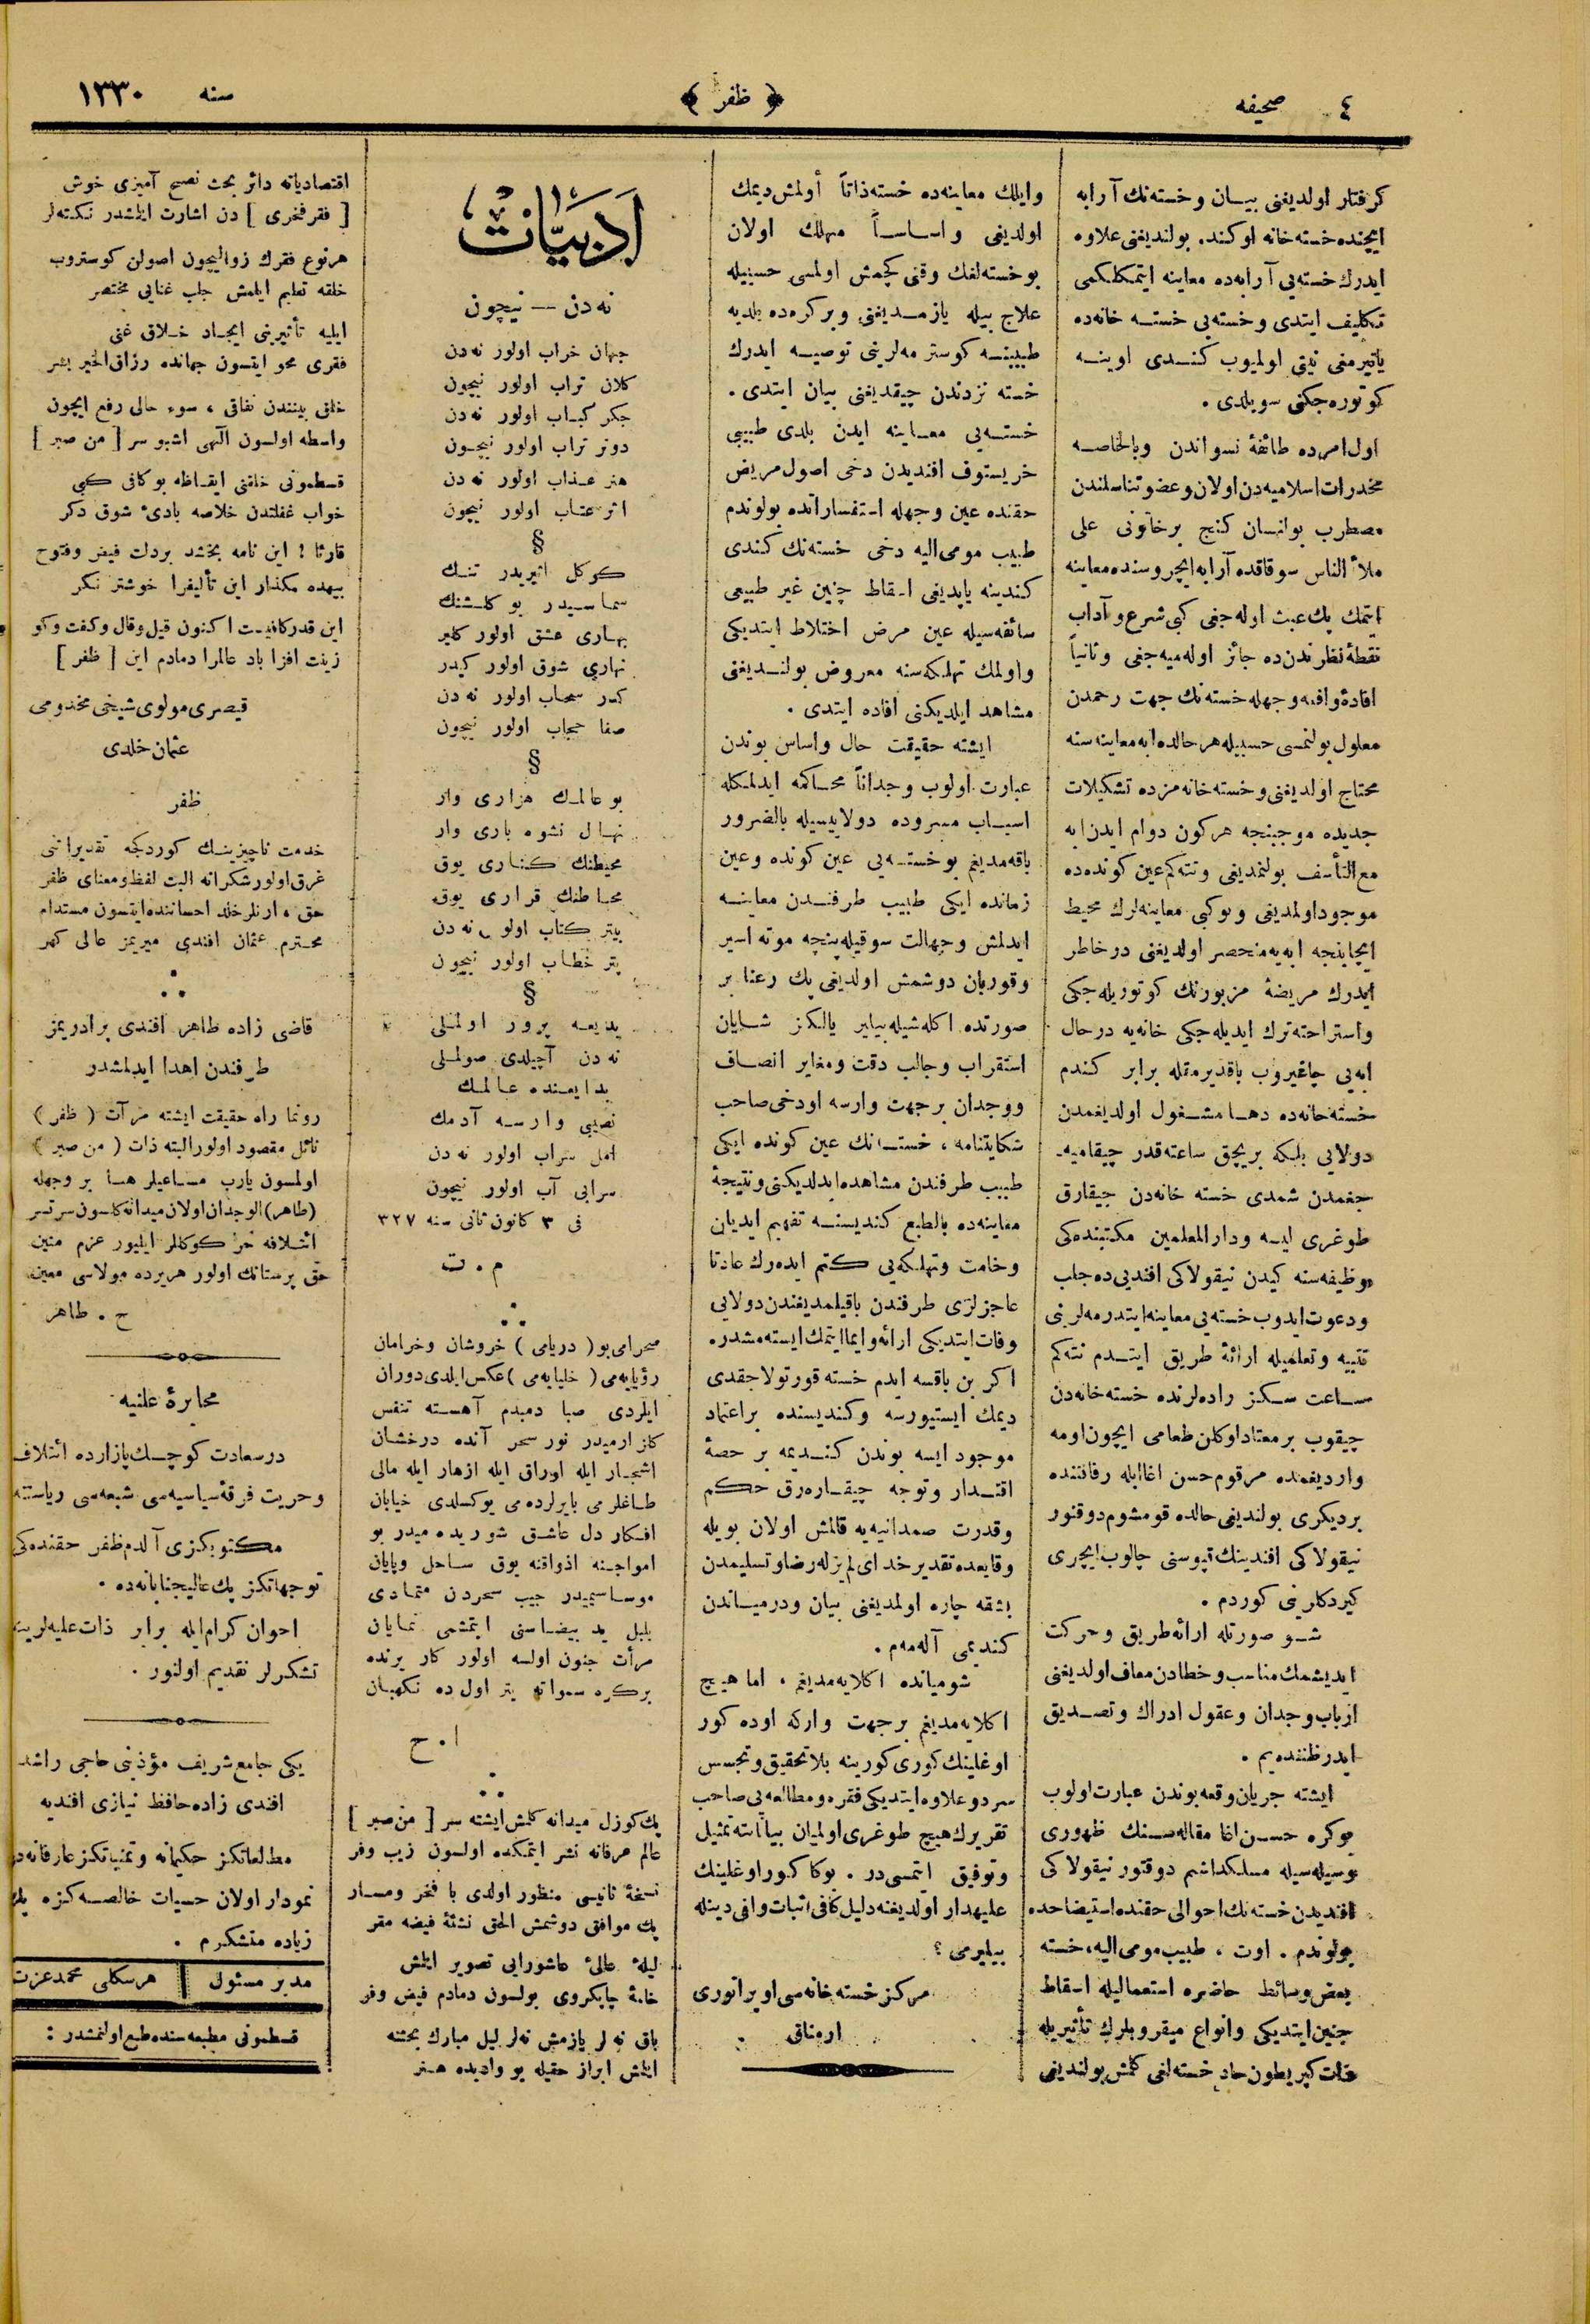 ٤ صحيفه
﴿ ظفر ﴾
سنه ١٣٣٠
كرفتار اولديغنى بيان و خسته‌نك آرابه
ايچنده خسته خانه اوكنده بولنديغنى علاوه
ايدرك خسته‌يى آرابه‌ده معاينه ايتمكلكمى
تكليف ايتدى و خسته‌يى خسته خانه‌ده
ياتيرمغى نيتى اولميوب كندى اوينه
كوتوره‌جكنى سويلدى .
اول امرده طائفۀ نسواندن وبالخاصه
مخدرات اسلاميه‌دن اولان وعضو تناسلندن
مضطرب بولنسان كنج بر خاتونى على
ملأ الناس سوقاقده آرابه ايچروسنده معاينه
ايتمك پك عبث اوله جغى كبى شرع و آداب
نقطۀ نظرندن‌ده جائز اوله ميه جغى وثانياً
افادۀ واقعه وجهله خسته‌نك جهت رحمدن
معلول بولنمسى حسبيله هر حالده ابه معاينه‌سنه
محتاج اولديغنى و خسته خانه مزده تشكيلات
جديده موجبنجه هركون دوام ايدن ابه
مع التأسف بولنمديغى ونته‌كم عين كونده‌ده
موجود اولمديغى وبوكبى معاينه‌لرك محيط
ايجابنجه ابه‌يه منحصر اولديغنى در خاطر
ايدرك مريضۀ مزبوره‌نك كوتوريله جكى
واستراحته ترك ايديله جكى خانه‌يه درحال
ابه‌يى چاغيروب باقديرمقله برابر كندم
خسته‌خانه‌ده دها مشغول اولديغمدن
دولايى بلكه بر بچق ساعته قدر چيقاميه-
جغمدن شمدى خسته خانه‌دن چيقارق
طوغرى ليسه ودارالمعلمين مكتبنده‌كى
وظيفه‌سنه كيدن نيقولاكى افنديى‌ده جلب
ودعوت ايدوب خسته‌يى معاينه ايتدرمه‌لرينى
تنبيه وتعلميله ارائۀ طريق ايتدم نته‌كم
ساعت سكز راده‌لرنده خسته خانه‌دن
چيقوب بر معتاد اوكلن طعامى ايچون اومه
وارديغمده مرقوم حسن اغا ايله رفاقتنده
برديكرى بولنديغى حالده قومشوم دوقتور
نيقولاكى افندينك قپوسنى چالوب ايچرى
كيردكلرينى كوردم .
شو صورتله ارائه طريق وحركت
ايديشمك مناسب وخطادن معاف اولديغنى
ارباب وجدان وعقول ادراك وتصديق
ايدر ظننده‌يم .
ايشته جريان وقعه بوندن عبارت اولوب
بوكره حسن اغا مقاله‌سنك ظهورى
وسيله‌سيله مسلكداشم دوقتور نيقولاكى
افنديدن خسته‌نك احوالى حقنده استيضاحده
بولوندم . اوت ، طبيب مومى اليه ، خسته
بعض وسائط حاضره استعماليله اسقاط
جنين ايتديكى وانواع ميقروبلرك تأثيريله
قات كبر بطون حاد خسته‌لغى كلمش بولنديغى
وايلك معاينه‌ده خسته ذاتاً أولمش ديمك
اولديغى واساساً مهلك اولان
بوخسته‌لغك وقتى كچمش اولمسى حسبيله
علاج بيله يازمديغنى وبركره‌ده بلديه
طبيبنه كوسترمه‌لرينى توصيه ايدرك
خسته نزدندن چيقديغنى بيان ايتدى .
خسته‌يى معاينه ايدن بلدى طبيبى
خريستوف افنديدن دخى اصول مريض
حقنده عين وجهله استفساراتده بولوندم
طبيب مومى اليه دخى خسته‌نك كندى
كندينه ياپديغى اسقاط چنين غير طبيعى
سائقه‌سيله عين مرض اختلاط ايتديكى
واولمك تهلكه‌سنه معروض بولنديغنى
مشاهد ايلديكنى افاده ايتدى .
ايشته حقيقت حال واساس بوندن
عبارت اولوب وجداناً محاكمه ايدلمكله
اسباب مسروده دولاييسيله بالضرور
باقه‌مديغم بو خسته‌يى عين كونده وعين
زمانده ايكى طبيب طرفندن معاينه
ايدلمش وجهالت سوقيله پنچه موته اسير
وقوربان دوشمش اولديغى پك رعنا بر
صورتده اكله‌شيله بيلير يالكز شايان
استغراب وجالب دقت ومغاير انصاف
ووجدان برجهت وارسه اودخى صاحب
شكايتنامه ، خسته‌نك عين كونده ايكى
طبيب طرفندن مشاهده ايدلديكنى ونتيجۀ
معاينه‌ده بالطبع كنديسنه تفهيم ايديلن
وخامت وتهلكه‌يى كتم ايده‌رك عادتا
عاجزلرى طرفندن باقيلمديغندن دولايى
وفات ايتديكى ارائه وايما ايتمك ايسته‌مشدره
اكر بن باقسه ايدم خسته قورتولاجقدى
ديمك ايستيورسه وكنديسنده بر اعتماد
موجود ايسه بوندن كنديمه بر حصۀ
اقتدار وتوجه چيقاره‌رق حكم
وقدرت صمدانيه‌يه قالمش اولان بويله
وقايعده تقدير خداى لم يزله رضا وتسليمدن
بشقه چاره اولمديغنى بيان ودرمياندن
كنديمى آله‌مم .
شوميانده اكلايه‌مديغم ، اما هيچ
اكلايه‌مديغم برجهت واركه اوده كور
اوغلينك كورى كورينه بلا تحقيق وتجسس
سرد وعلاوه ايتديكى فقره ومطالعه‌يى صاحب
تقريرك هيچ طوغرى اولميان بياناتنه تمثيل
وتوفيق ايتمسى در . بوكا كور اوغلينك
عليهدار اولديغنه دليل كافى اثبات وافى دينله
بيليرمى ؟
مركز خسته خانه‌سى اوپراتورى
اَدَبِيَّات
نه دن — نيچون
جهان خراب اولور نه دن
كلان تراب اولور نيچون
جكر كباب اولور نه دن
دونر تراب اولور نيچون
هنر عذاب اولور نه دن
اثر عتاب اولور نيچون
§
كوكل اثيريدر تنك
سماسيدر بو كلشنك
بهارى عشق اولور كلير
نهارى شوق اولور كيدر
كدر سحاب اولور نه دن
صفا حجاب اولور نيچون
§
بو عالمك هزارى وار
نهال نشوه بارى وار
محيطنك كنارى يوق
محاطنك قرارى يوق
بيتر كتاب اولور نه دن
يتر خطاب اولور نيچون
§
بديعه پرور اولملى
نه دن آچيلدى صولملى
بدايعنده عالمك
نصيبى وارسه آدمك
امل سراب اولور نه دن
سرابى آب اولور نيچون
فى ٣ كانون ثانى سنه ٣٢٧
م . ت
صحرامى بو ( دريامى ) خروشان وخرامان
رؤيايه‌مى ( خليايه‌مى ) عكس ايلدى دوران
ايلردى صبا دمبدم آهسته تنفس
كلزارميدر نور سحر آنده درخشان
اشجار ايله اوراق ايله ازهار ايله مالى
طاغلرمى بايرلرده‌مى يوكسلدى خيابان
افكار دل عاشق شوريده ميدر بو
امواجنه اذواقنه يوق ساحل وپايان
موساسيميدر جيب سحردن متمادى
بلبل يد بيضاسنى ايتمشمى نمايان
مرأت جنون اولسه اولور كار يرنده
بركره سمواته يتر اول ده نكهبان
ا . ح
پك كوزل ميدانه كلمش ايشته سر [ من صبر ]
عالم عرفانه نشر ايتمكده اولسون زيب وفر
نسخۀ ثانيسى منظور اولدى با فخر ومسار
پك موافق دوشمش الحق نشئۀ فيضه مقر
ليلۀ عالئ عاشورايى تصوير ايلمش
خامۀ چابكروى بولسون دمادم فيض وفر
باقى نه لر يازمش نه‌لر ليل مبارك بحثنه
ايلمش ابراز حقيله بو واديده هنر
اقتصادياته دائر بحث نصح آميزى خوش
[ فقر فخرى ] دن اشارت ايلمشدر نكته‌لر
هر نوع فقرك زوالچون اصولن كوستروب
خلقه تعليم ايلمش جلب غنايى مختصر
ايليه تأثيرينى ايجاد خلاق غنى
فقرى محو ايتسون جهانده رزاق الخير بشر
خلق بيننده نفاقى ، سوء حالى رفع ايچون
واسطه اولسون آلهى اشبو سر [ من صبر ]
قسطمونى خلقنى ايقاظه بو كافى كبى
خواب غفلتدن خلاصه بادئ شوق دكر
قارئا ! اين نامه بخشد بردلت فيض وفتوح
بيهده مكذار اين تأليفرا خوشتر نكر
اين قدر كافيست اكنون قيل وقال وكفت وكو
زينت افزا باد عالمرا دمادم اين [ ظفر ]
قيصرى مولوى شيخى مخدومى
عثمان خلدى
ظفر
خدمت ناچيزينك كوردكجه تقديراتنى
غرق اولور شكرانه البت لفظ ومعناى ظفر
حق ، ارنلر خلد احساننده ايتسون مستدام
محترم عثمان افندى ميريمز عالى كهر
قاضى زاده طاهر افندى برادريمز
طرفندن اهدا ايدلمشدر
رونما راه حقيقت ايشته مرآت ( ظفر )
نائل مقصود اولور البته ذات ( من صبر )
اولمسون يارب مساعيلر هبا بر وجهله
(طاهر) الوجدان اولان ميدانه كلسون سرتسر
حق پرستانك اولور هريرده مولاسى معين
ح . طاهر
مخابرۀ علنيه
درسعادت كوچك پازارده ائتلاف
وحريت فرقۀ سياسيه‌سى شعبه‌سى رياستنه
مكتوبكزى آلدم ظفر حقنده‌كى
توجهاتكز پك عاليجنابانه‌ده .
اخوان كرام ايله برابر ذات عليه‌لرينه
تشكرلر تقديم اولنور .
يكى جامع شريف مؤذنى حاجى راشد
افندى زاده حافظ نيازى افنديه
مطالعاتكز حكيمانه وتمنياتكز عارفانه‌در
نمودار اولان حسيات خالصه كزه پك
زياده متشكرم .
مدير مسئول
هرسكلى محمد عزت
قسطمونى مطبعه‌سنده طبع اولنمشدر :